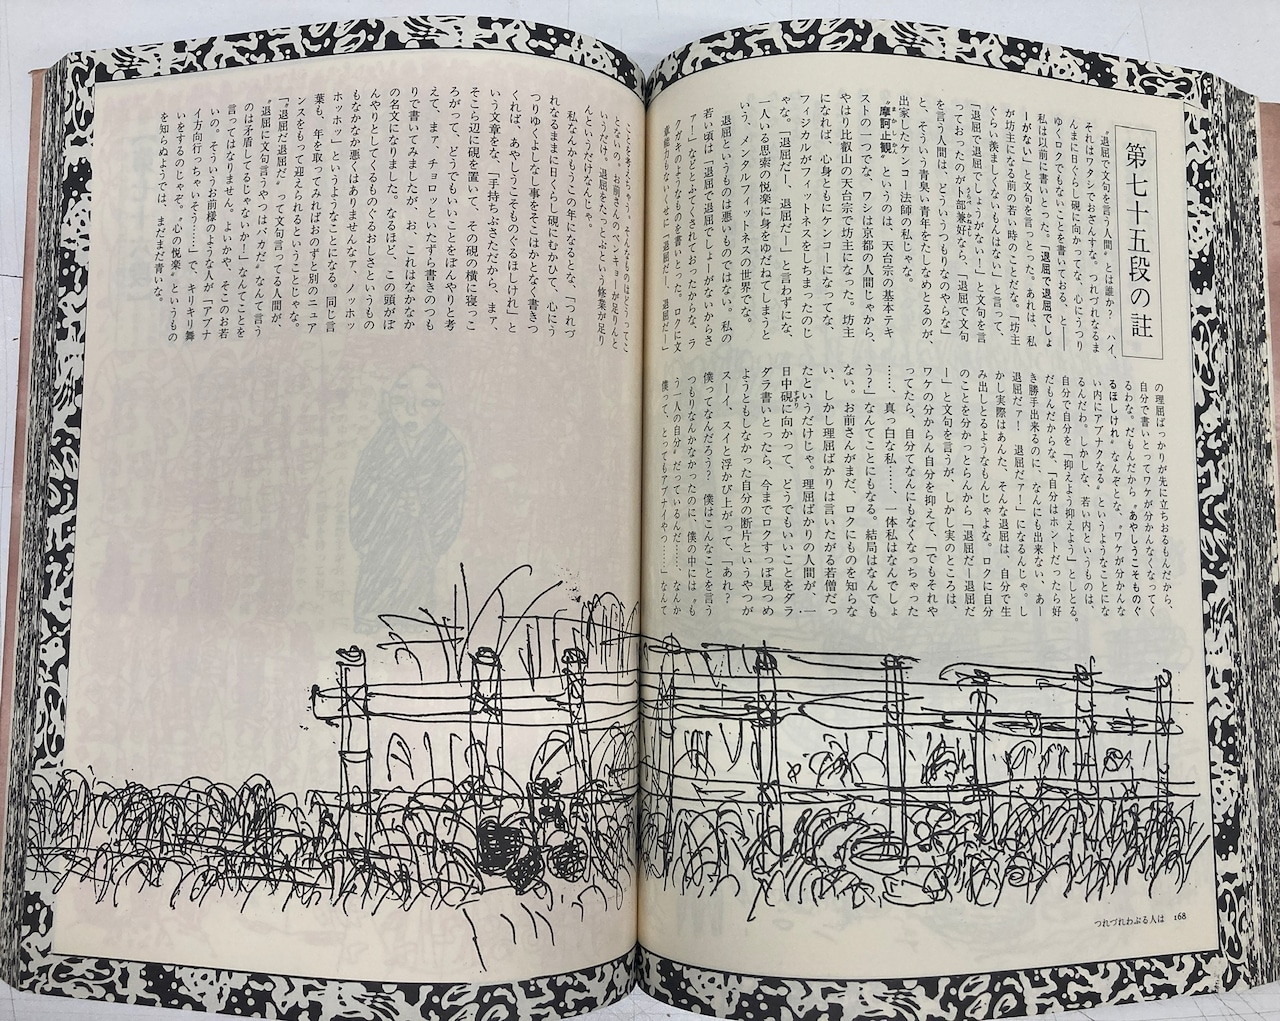 第七十五段の註
〝退屈で文句を言う人間〟とは誰か? ハイ、
それはワタシでおざんすな。つれづれなるま
んまに日ぐらし硯に向かってな、心にうつり
ゆくロクでもないことを書いておる、と――
私は以前に書いとった。「退屈で退屈でしょ
ーがない」と文句を言っとった。あれは、私
が坊主になる前の若い時のことだな。「坊主
ぐらい羨ましくないもんはない」と言って、
「退屈で退屈でしょうがない!」と文句を言
っておったのが卜部兼好なら、「退屈で文句
を言う人間は、どういうつもりなのやらな」
と、そういう青臭い青年をたしなめとるのが、
出家したケンコー法師の私じゃな。
〝摩訶止観〟というのは、天台宗の基本テキ
ストの一つでな、ワシは京都の人間じゃから、
やはり比叡山の天台宗で坊主になった。坊主
になれば、心身ともにケンコーになってな、
フィジカルがフィットネスをしちまったのじ
ゃな。「退屈だー、退屈だー」と言わずにな、
一人いる思索の悦楽に身をゆだねてしまうと
いう、メンタルフィットネスの世界でな。
退屈というものは悪いものではない。私の
若い頃は「退屈で退屈でしょーがないからさ
ァー!」などとふてくされておったからな、ラ
クガキのようなものを書いとった。ロクに文
章能力もないくせに「退屈だー、退屈だー」
の理屈ばっかりが先に立ちおるもんだから、
自分で書いとってワケが分かんなくなってく
るわな。だもんだから〝あやしうこそものぐ
るほしけれ〟なんぞとな、〝ワケが分かんな
い内にアブナクなる〟というようなことにな
るんだわ。しかしな、若い内というものは、
自分で自分を「抑えよう抑えよう」としとる。
だもんだからな、「自分はホントだったら好
き勝手出来るのに、なんにも出来ない、あー
退屈だァ! 退屈だァ!」になるんじゃ。し
かし実際はあんた、そんな退屈は、自分で生
み出しとるようなもんじゃよな。ロクに自分
のことを分かっとらんから「退屈だー退屈だ
ー」と文句を言うが、しかし実のところは、
ワケの分からん自分を抑えて、「でもそれや
ってたら、自分てなんにもなくなっちゃった
……、真っ白な私……、一体私はなんでしょ
う?」なんてことにもなる。結局はなんでも
ない。お前さんがまだ、ロクにものを知らな
い、しかし理屈ばかりは言いたがる若僧だっ
たというだけじゃ。理屈ばかりの人間が、一
日中硯に向かって、どうでもいいことをダラ
ダラ書いとったら、今までロクすっぽ見つめ
ようともしなかった自分の断片というやつが
スーイ、スイと浮かび上がって、「あれ?
僕ってなんだろう? 僕はこんなことを言う
つもりなんかなかったのに、僕の中にはも
う一人の自分〟だっているんだ……、なんか
僕って、とってもアブナイやつ……」なんて
つれづれわぶる人は 168
いうことを考えちゃう。そんなものはどうってこ
とないの。お前さんのベンキョーが足りんと
いうだけ、退屈をたっとぶという修業が足り
んというだけなんじゃ。
私なんかもうこの年になるとな、「つれづ
れなるままに日くらし硯にむかひて、心にう
つりゆくよしなし事をそこはかとなく書きつ
くれば、あやしうこそものぐるほしけれ」と
いう文章をな、「手持ちぶさただから、まァ、
そこら辺に硯を置いて、その硯の横に寝っこ
ろがって、どうでもいいことをぼんやりと考
えて、まァ、チョロッといたずら書きのつも
りで書いてみましたが、お、これはなかなか
の名文になりました。なるほど、この頭がぼ
んやりとしてくるものぐるおしさというもの
もなかなか悪くはありませんなァ、ノッホッ
ホッホッ」というようなことになる。同じ言
葉も、年を取ってみればおのずと別のニュア
ンスをもって迎えられるということじゃな。
「〝退屈だ〟〝退屈だ〟って文句言ってる人間が
〝退屈に文句言うやつはバカだ〟なんて言う
のは矛盾してるじゃないか!」なんてことを
言ってはなりません。よいか、そこのお若
いの。そういうお前様のような人が「アブナ
イ方向行っちゃいそう……」で、キリキリ舞
いをするのじゃぞ。〝心の悦楽〟というもの
を知らぬようでは、まだまだ青いな。